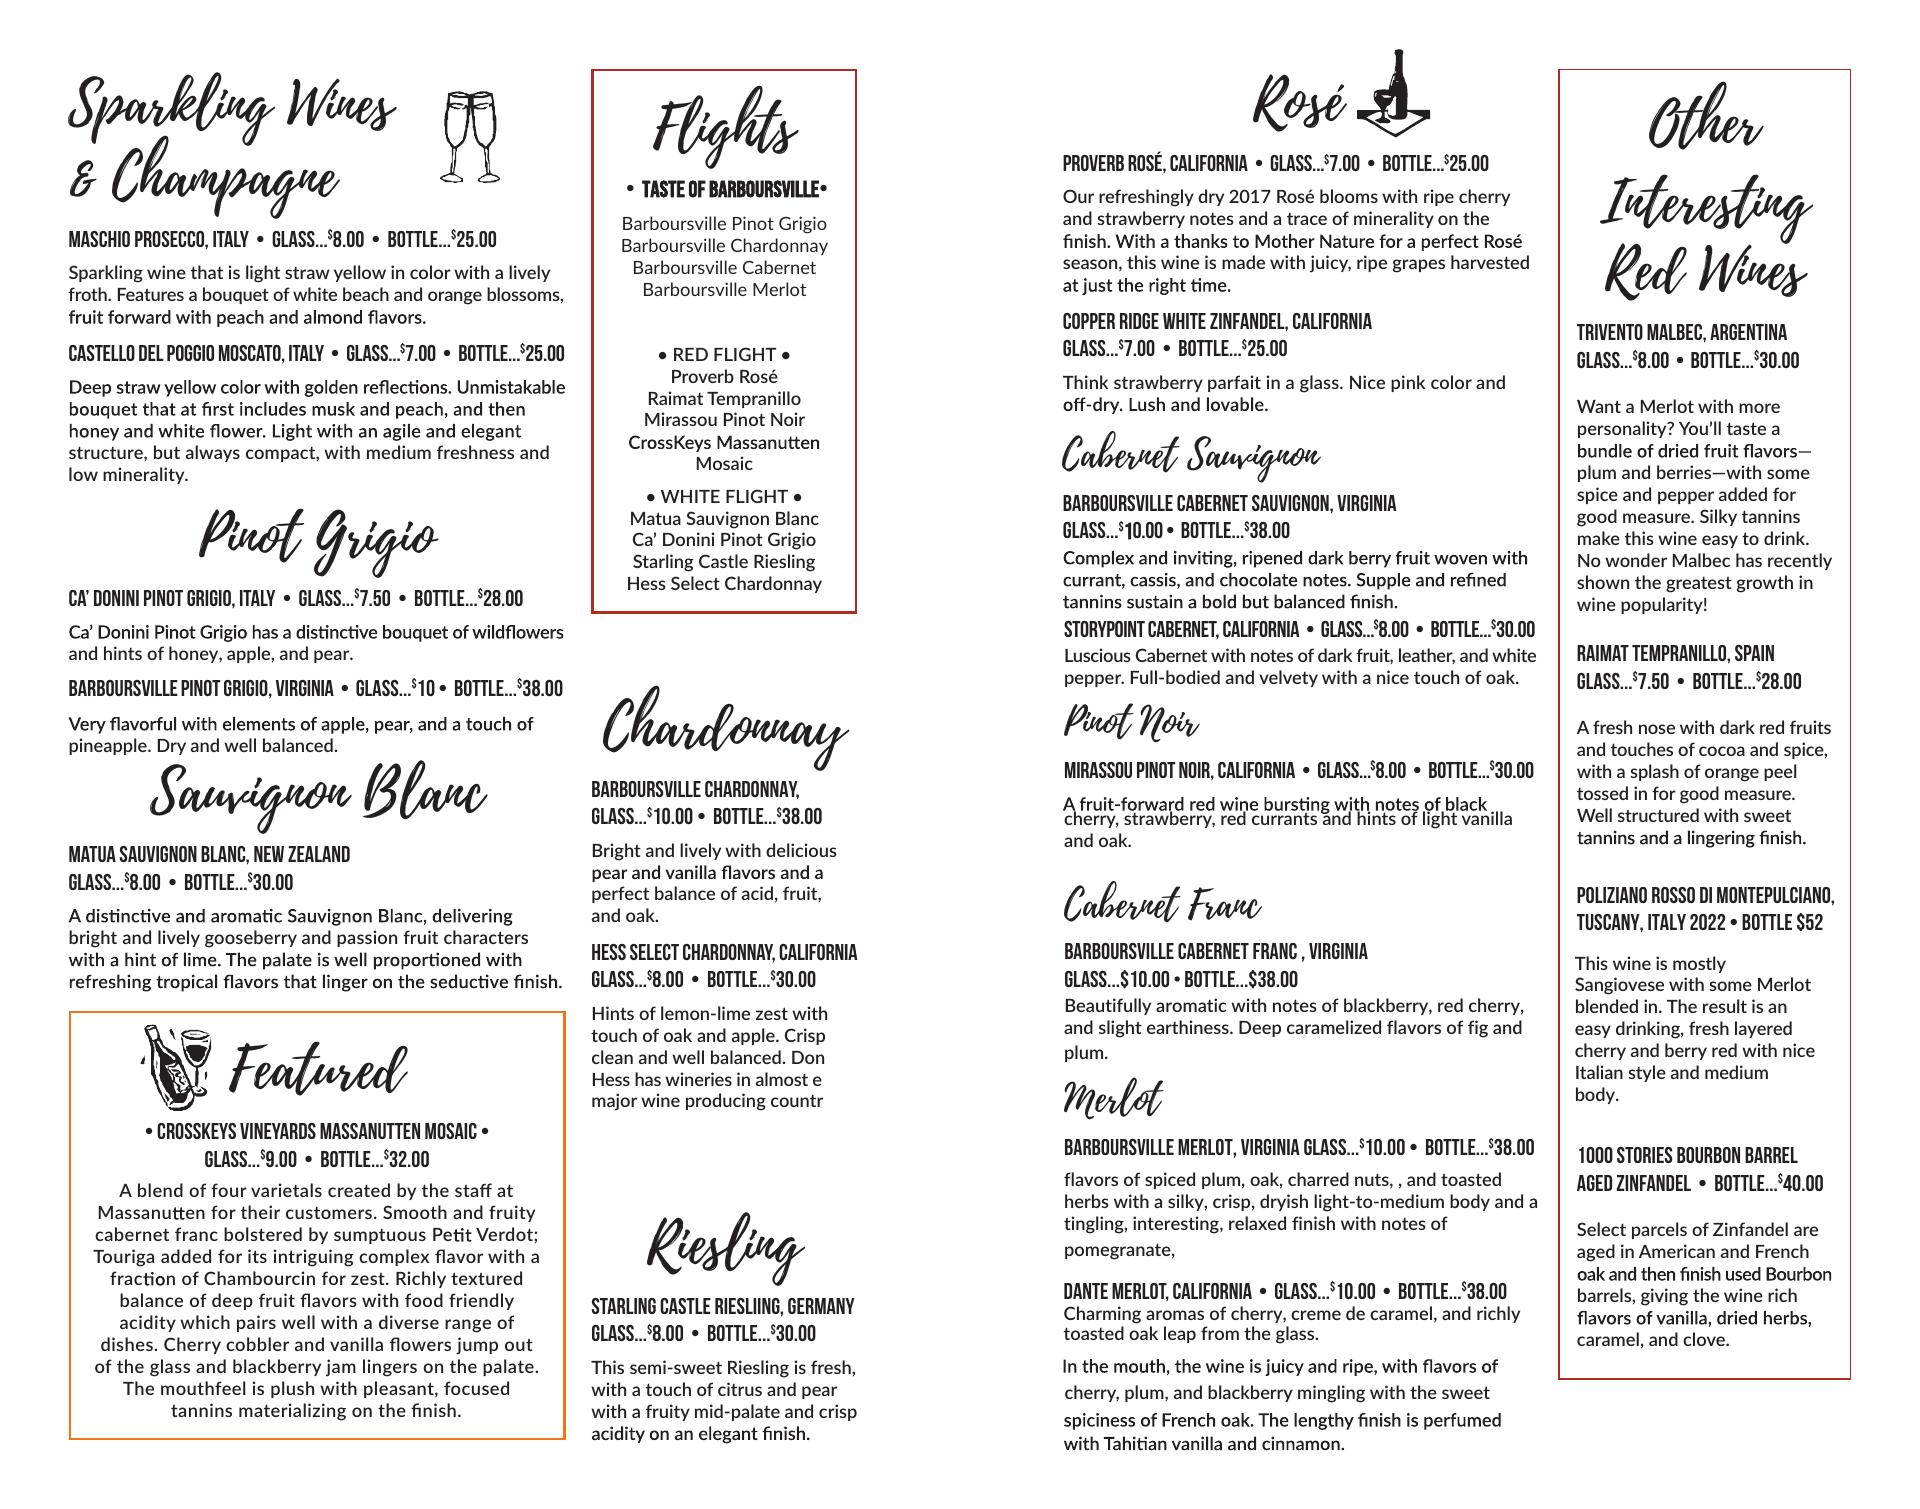 Sparkling Wines
& Champagne
MASCHIO PROSECCO, ITALY • GLASS...$8.00 • BOTTLE...$25.00
Sparkling wine that is light straw yellow in color with a lively
froth. Features a bouquet of white beach and orange blossoms,
fruit forward with peach and almond flavors.
CASTELLO DEL POGGIO MOSCATO, ITALY • GLASS...$7.00 • BOTTLE...$25.00
Deep straw yellow color with golden reflections. Unmistakable
bouquet that at first includes musk and peach, and then
honey and white flower. Light with an agile and elegant
structure, but always compact, with medium freshness and
low minerality.
Pinot Grigio
CA' DONINI PINOT GRIGIO, ITALY • GLASS...$7.50 • BOTTLE...$28.00
Ca' Donini Pinot Grigio has a distinctive bouquet of wildflowers
and hints of honey, apple, and pear.
BARBOURSVILLE PINOT GRIGIO, VIRGINIA • GLASS...$10 • BOTTLE...$38.00
Very flavorful with elements of apple, pear, and a touch of
pineapple. Dry and well balanced.
Sauvignon Blanc
MATUA SAUVIGNON BLANC, NEW ZEALAND
GLASS...$8.00 • BOTTLE...$30.00
A distinctive and aromatic Sauvignon Blanc, delivering
bright and lively gooseberry and passion fruit characters
with a hint of lime. The palate is well proportioned with
refreshing tropical flavors that linger on the seductive finish.
Featured
• CROSSKEYS VINEYARDS MASSANUTTEN MOSAIC •
GLASS...$9.00 • BOTTLE...$32.00
A blend of four varietals created by the staff at
Massanutten for their customers. Smooth and fruity
cabernet franc bolstered by sumptuous Petit Verdot;
Touriga added for its intriguing complex flavor with a
fraction of Chambourcin for zest. Richly textured
balance of deep fruit flavors with food friendly
acidity which pairs well with a diverse range of
dishes. Cherry cobbler and vanilla flowers jump out
of the glass and blackberry jam lingers on the palate.
The mouthfeel is plush with pleasant, focused
tannins materializing on the finish.
Flights
• TASTE OF BARBOURSVILLE•
Barboursville Pinot Grigio
Barboursville Chardonnay
Barboursville Cabernet
Barboursville Merlot
• RED FLIGHT •
Proverb Rosé
Raimat Tempranillo
Mirassou Pinot Noir
CrossKeys Massanutten
Mosaic
• WHITE FLIGHT •
Matua Sauvignon Blanc
Ca' Donini Pinot Grigio
Starling Castle Riesling
Hess Select Chardonnay
Chardonnay
BARBOURSVILLE CHARDONNAY,
GLASS...$10.00 • BOTTLE...$38.00
Bright and lively with delicious
pear and vanilla flavors and a
perfect balance of acid, fruit,
and oak.
HESS SELECT CHARDONNAY, CALIFORNIA
GLASS...$8.00 • BOTTLE...$30.00
Hints of lemon-lime zest with
touch of oak and apple. Crisp
clean and well balanced. Don
Hess has wineries in almost e
major wine producing countr
Riesling
STARLING CASTLE RIESLIING, GERMANY
GLASS...$8.00 • BOTTLE...$30.00
This semi-sweet Riesling is fresh,
with a touch of citrus and pear
with a fruity mid-palate and crisp
acidity on an elegant finish.
Rosé
PROVERB ROSÉ, CALIFORNIA • GLASS...$7.00 • BOTTLE...$25.00
Our refreshingly dry 2017 Rosé blooms with ripe cherry
and strawberry notes and a trace of minerality on the
finish. With a thanks to Mother Nature for a perfect Rosé
season, this wine is made with juicy, ripe grapes harvested
at just the right time.
COPPER RIDGE WHITE ZINFANDEL, CALIFORNIA
GLASS...$7.00 • BOTTLE...$25.00
Think strawberry parfait in a glass. Nice pink color and
off-dry. Lush and lovable.
Cabernet Sauvignon
BARBOURSVILLE CABERNET SAUVIGNON, VIRGINIA
GLASS...$10.00 • BOTTLE...$38.00
Complex and inviting, ripened dark berry fruit woven with
currant, cassis, and chocolate notes. Supple and refined
tannins sustain a bold but balanced finish.
STORYPOINT CABERNET, CALIFORNIA • GLASS...$8.00 • BOTTLE...$30.00
Luscious Cabernet with notes of dark fruit, leather, and white
pepper. Full-bodied and velvety with a nice touch of oak.
Pinot Noir
MIRASSOU PINOT NOIR, CALIFORNIA • GLASS...$8.00 • BOTTLE...$30.00
A fruit-forward red wine bursting with notes of black
cherry, strawberry, red currants and hints of light vanilla
and oak.
Cabernet Franc
BARBOURSVILLE CABERNET FRANC , VIRGINIA
GLASS...$10.00 • BOTTLE...$38.00
Beautifully aromatic with notes of blackberry, red cherry,
and slight earthiness. Deep caramelized flavors of fig and
plum.
Merlot
BARBOURSVILLE MERLOT, VIRGINIA GLASS...$10.00 • BOTTLE...$38.00
flavors of spiced plum, oak, charred nuts, , and toasted
herbs with a silky, crisp, dryish light-to-medium body and a
tingling, interesting, relaxed finish with notes of
pomegranate,
DANTE MERLOT, CALIFORNIA • GLASS...$10.00 • BOTTLE...$38.00
Charming aromas of cherry, creme de caramel, and richly
toasted oak leap from the glass.
In the mouth, the wine is juicy and ripe, with flavors of
cherry, plum, and blackberry mingling with the sweet
spiciness of French oak. The lengthy finish is perfumed
with Tahitian vanilla and cinnamon.
Other
Interesting
Red Wines
TRIVENTO MALBEC, ARGENTINA
GLASS...$8.00 • BOTTLE...$30.00
Want a Merlot with more
personality? You'll taste a
bundle of dried fruit flavors—
plum and berries—with some
spice and pepper added for
good measure. Silky tannins
make this wine easy to drink.
No wonder Malbec has recently
shown the greatest growth in
wine popularity!
RAIMAT TEMPRANILLO, SPAIN
GLASS...$7.50 • BOTTLE...$28.00
A fresh nose with dark red fruits
and touches of cocoa and spice,
with a splash of orange peel
tossed in for good measure.
Well structured with sweet
tannins and a lingering finish.
POLIZIANO ROSSO DI MONTEPULCIANO,
TUSCANY, ITALY 2022 • BOTTLE $52
This wine is mostly
Sangiovese with some Merlot
blended in. The result is an
easy drinking, fresh layered
cherry and berry red with nice
Italian style and medium
body.
1000 STORIES BOURBON BARREL
AGED ZINFANDEL • BOTTLE...$40.00
Select parcels of Zinfandel are
aged in American and French
oak and then finish used Bourbon
barrels, giving the wine rich
flavors of vanilla, dried herbs,
caramel, and clove.